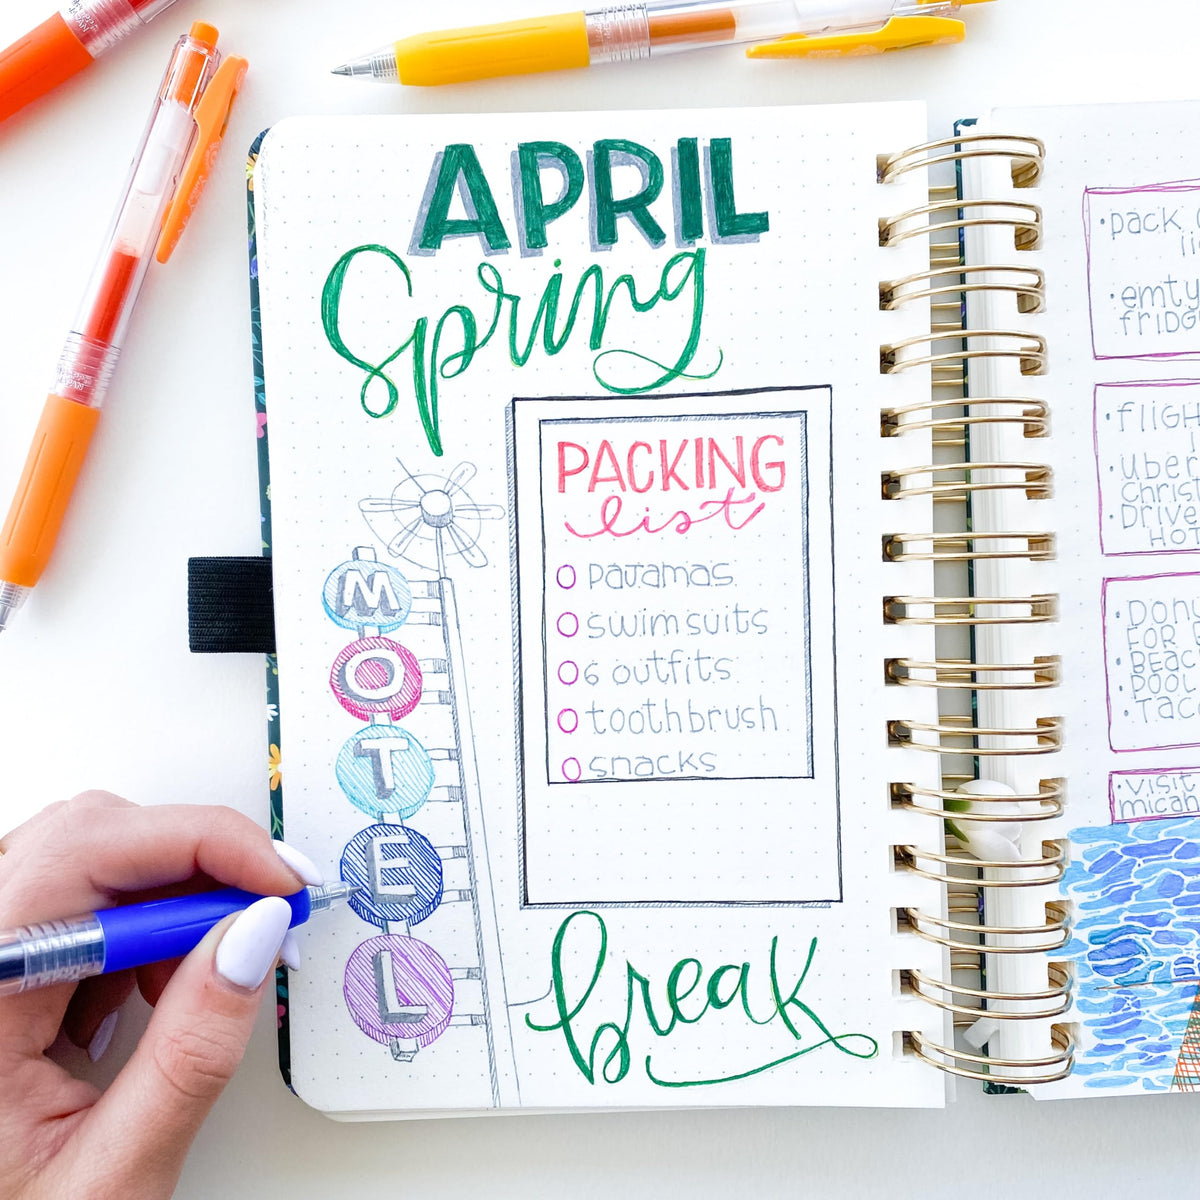 APRIL
Spring
PACKING
list
PAJAMAS
swimsuits
6 outfits
toothbrush
snacks
MOTEL
break
• pack
• emty
• flight
• uber
Drive
• Donu
FOR
• BEAC
• POOL
• TAC
• visit
micah
JAPAN